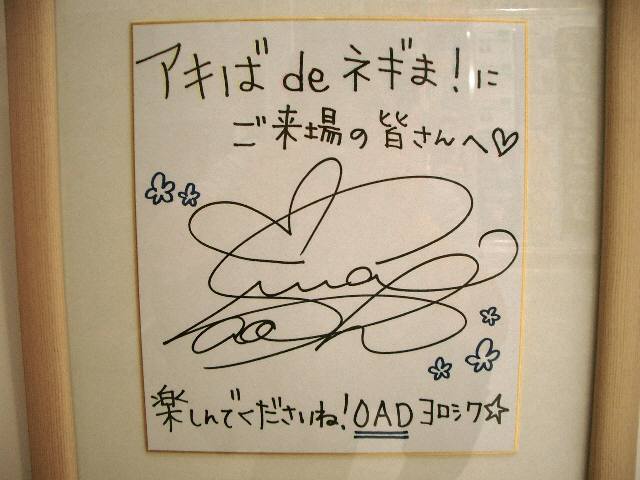 アキば de ネギま！に
ご来場の皆さんへ♡
楽しんでくださいね！OADヨロシク☆